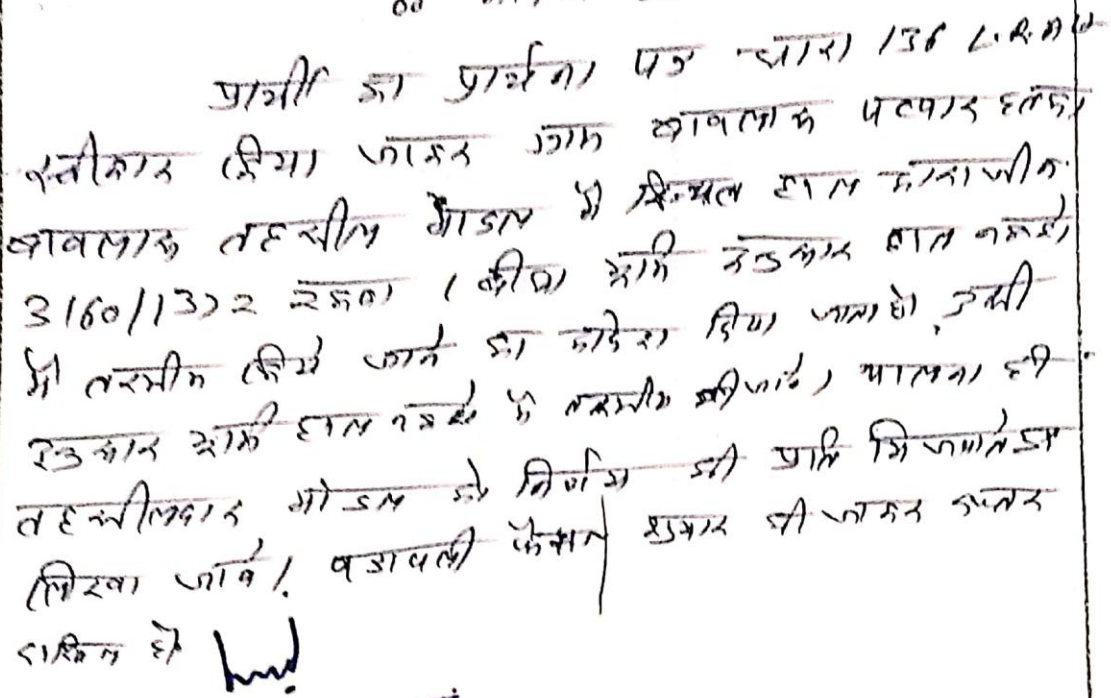 प्रार्थी का प्रार्थना पत्र धारा 136 L.R. Act
स्वीकार किया जाकर ग्राम बावलास पटवार हल्का
बावलास तहसील माण्डल में स्थित हाल आराजी नं.
3160/1372 रकबा 1 बीघा भूमि रेकार्ड हाल नक्शे
में तरमीम किये जाने का आदेश दिया जाता है। इसी
भूमि हाल नक्शे में तरमीम की जावे। पालना ही
तहसीलदार माण्डल को निर्णय की प्रति भिजवाते हुए
लिखा जावे। पत्रावली फैसल शुमार की जाकर दफ्तर
दाखिल हो